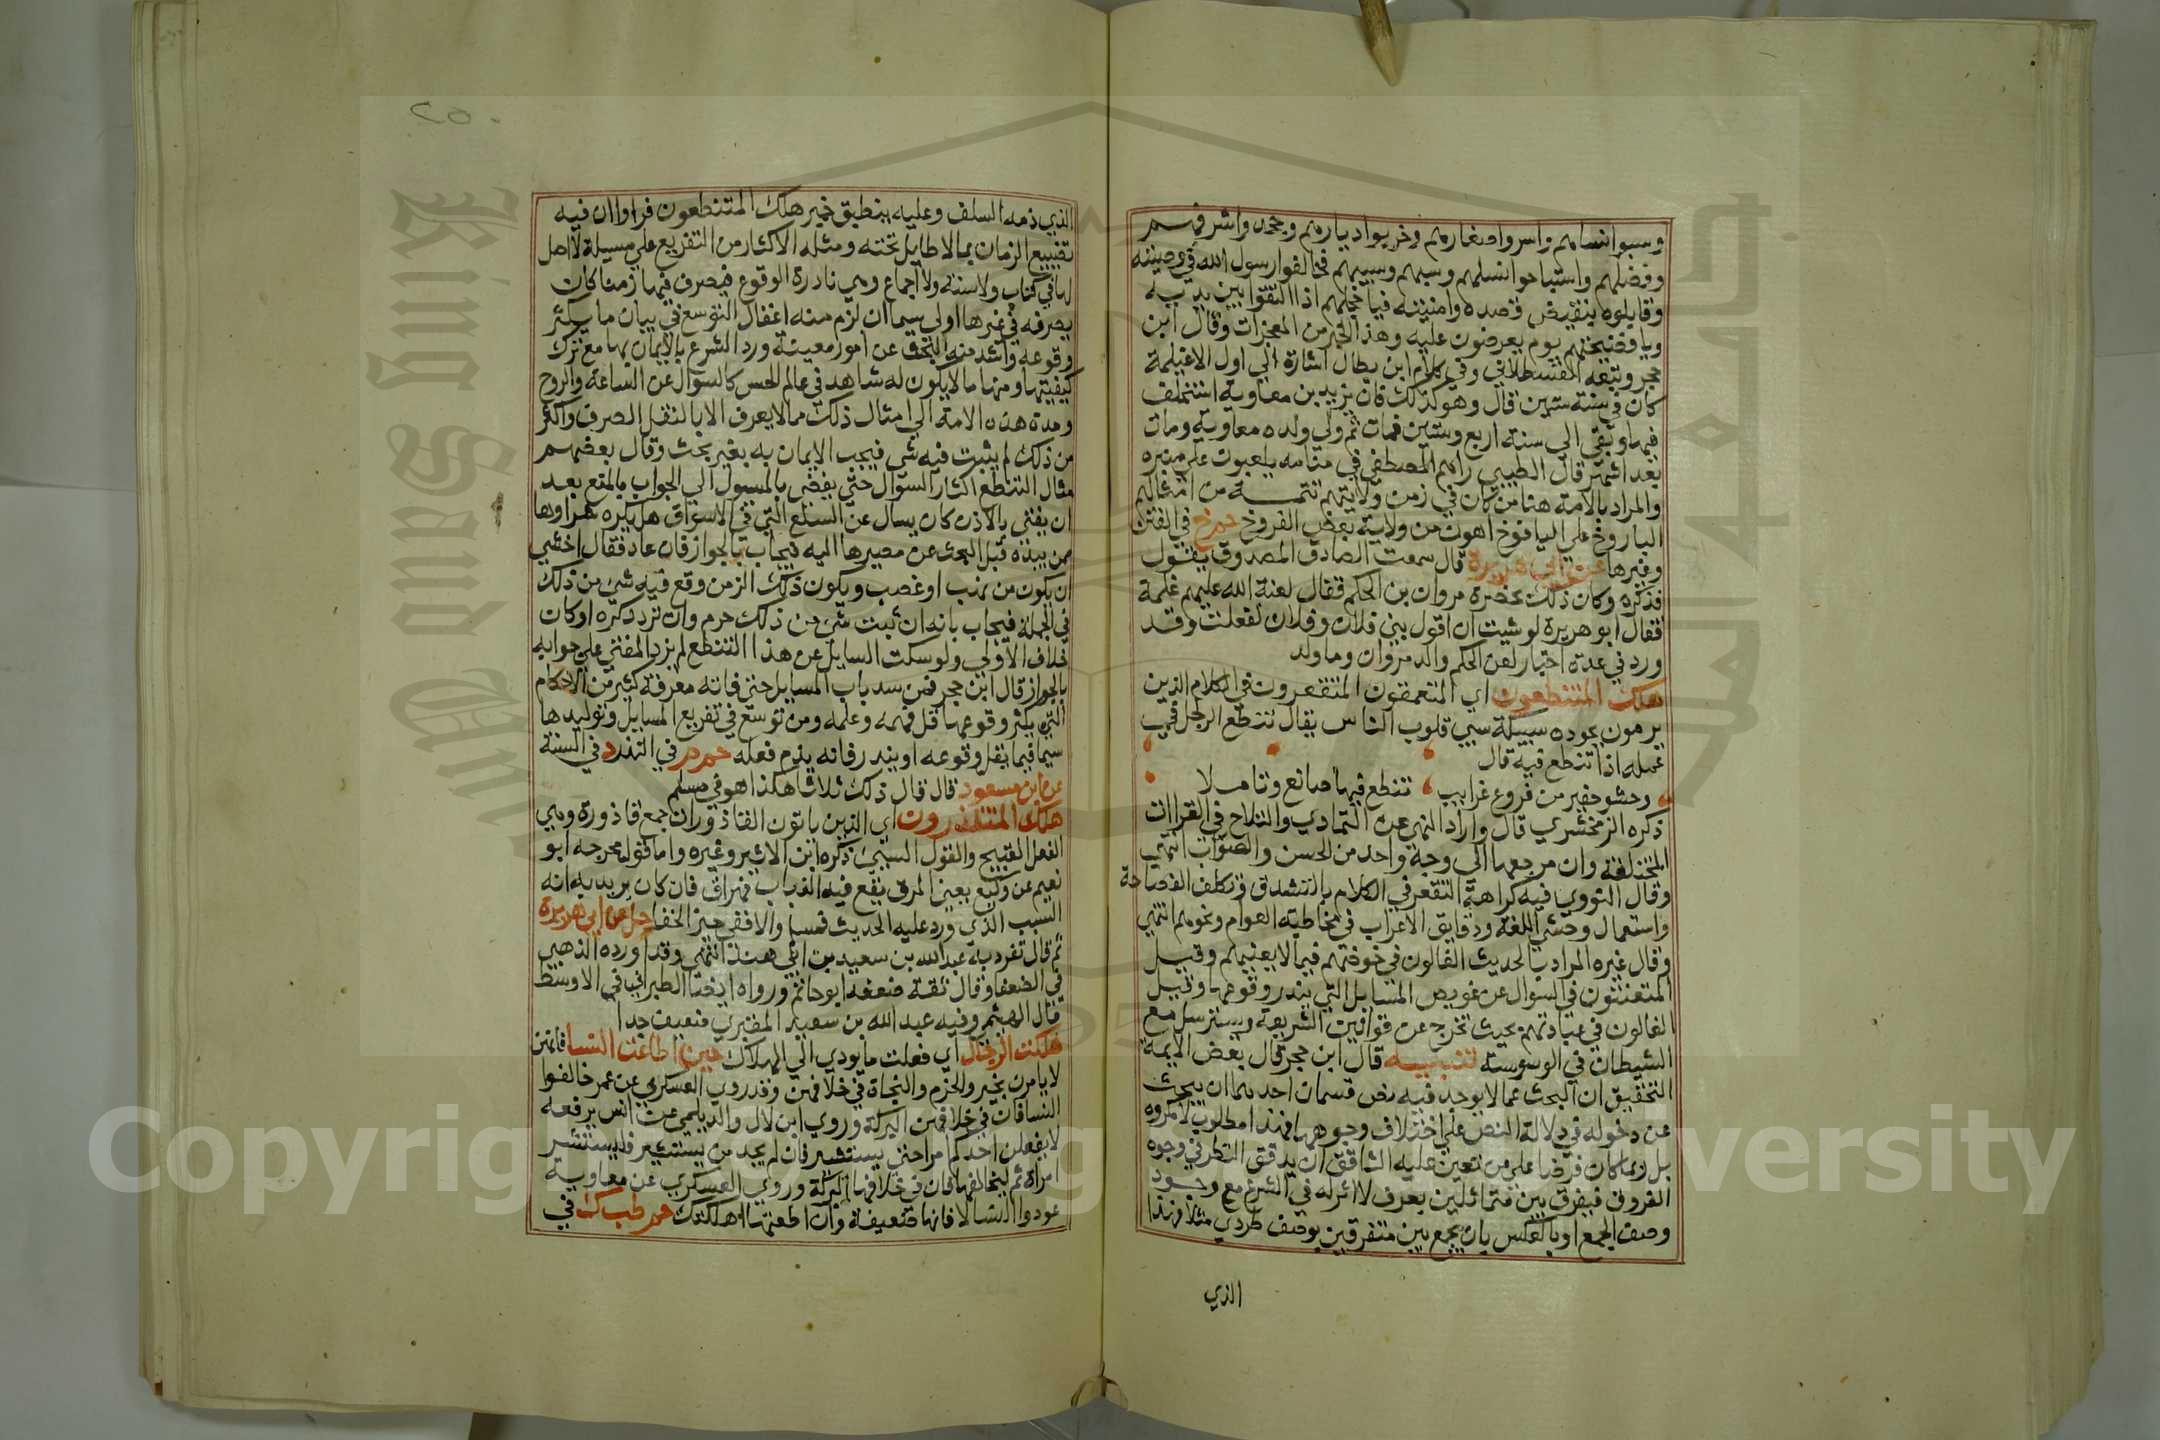 وسبوا نساءهم واسروا صغارهم وخربوا ديارهم وجحدوا شرفهم
وفضلهم واستباحوا نسلهم وسبهم وسبيهم فخالفوا رسول الله في وصيته
وقابلوه بنقيض قصده وامنيته فيا خجلهم اذا التقوا بين يديه
ويا فضيحتهم يوم يعرضون عليه وهذا الخبر من المعجزات وقال ابن
حجر وتبعه القسطلاني وفي كلام ابن بطال اشارة الي اول الاغيلمة
كان في سنة ستين قال وهو كذلك فان يزيد بن معاوية استخلف
فيها وبقي الي سنة اربع وستين فمات ثم ولي ولده معاوية ومات
بعد اشهر قال الطيبي راهم المصطفي في منامه يلعبون علي منبره
والمراد بالامة هنا من كان في زمن ولايتهم تتمة من امثالهم
الباروخ علي اليافوخ اهون من ولاية بعض الفروخ حم خ في الفتن
وغيرها عن ابي هريرة قال سمعت الصادق المصدوق يقول
فذكره وكان ذلك بحضرة مروان بن الحكم فقال لعنة الله عليهم غلمة
فقال ابو هريرة لو شيت ان اقول بني فلان وفلان لفعلت وقد
ورد في عدة اخبار لعن الحكم والد مروان وما ولد
هلك المتنطعون اي المتعمقون المتقعرون في الكلام الذين
يرومون بجوده سبيكة سبي قلوب الناس يقال تنطع الرجل في
عمله اذا تنطع فيه قال
وحشو حفير من فروع غرايب تنطع فيها صانع وتاملا
ذكره الزمخشري قال واراد النهي عن التمادي والتلاح في القراات
المختلفة وان مرجعها الي وجه واحد من الحسن والصواب انتهي
وقال النووي فيه كراهة التقعر في الكلام بالتشدق وتكلف الفصاحة
واستعمال وحشي اللغة ودقايق الاعراب في مخاطبة العوام ونحوهم انتهي
وقال غيره المراد بالحديث الغالون في خوضهم فيما لا يعنيهم وقيل
المتعنتون في السوال عن عويص المسايل التي يندر وقوعها وقيل
الغالون في عبادتهم بحيث تخرج عن قوانين الشريعة ويسترسل مع
الشيطان في الوسوسة تنبيه قال ابن حجر قال بعض الايمة
التحقيق ان البحث عما لا يوجد فيه نص قسمان احدهما ان يبحث
عن دخوله في دلالة النص علي اختلاف وجوهها فهذا مطلوب لا مكروه
بل ربما كان فرضا علي من تعين عليه الثاني ان يدقق النظر في وجوه
الفروق فيفرق بين متماثلين بفرق لا اثر له في الشرع مع وجود
وصف الجمع او بالعكس بان يجمع بين متفرقين بوصف طردي مثلا فهذا
الذي
٢٥٠
الذي ذمه السلف وعليه ينطبق خبر هلك المتنطعون فراوا ان فيه
تضييع الزمان بما لا طايل تحته ومثله الاكثار من التفريع علي مسيلة لا اصل
لها في كتاب ولا سنة ولا اجماع وهي نادرة الوقوع فيصرف فيها زمنا كان
يصرفه في غيرها اولي سيما ان لزم منه اغفال التوسع في بيان ما يكثر
وقوعه واشد منه البحث عن امور معينة ورد الشرع بالايمان بها مع ترك
كيفيتها ومنها ما لا يكون له شاهد في عالم الحس كالسوال عن الساعة والروح
ومدة هذه الامة الي امثال ذلك مما لا يعرف الا بالنقل الصرف واكثر
من ذلك لم يثبت فيه شي فيجب الايمان به بغير بحث وقال بعضهم
مثال التنطع اكثار السوال حتي يفضي بالمسيول الي الجواب بالمنع بعد
ان يفتي بالاذن كان يسال عن السلع التي في الاسواق هل يكره شراوها
ممن بيده قبل البحث عن مصيرها اليه فيجاب بالجواز فان عاد فقال اخشي
ان يكون من نهب او غصب ويكون ذلك الزمن وقع فيه شي من ذلك
في الجملة فيجاب بانه ان ثبت شي من ذلك حرم وان تردد كره او كان
خلاف الاولي ولو سكت السايل عن هذا التنطع لم يزد المفتي علي جوابه
بالجواز قال ابن حجر فمن سد باب المسايل حتي فاته معرفة كثير من الاحكام
التي يكثر وقوعها قل فهمه وعلمه ومن توسع في تفريع المسايل وتوليدها
سيما فيما يقل وقوعه او يندر فانه يذم فعله حم م في القدر د في السنة
عن ابن مسعود قال قال ذلك ثلاثا هكذا هو في مسلم
هلك المتقذرون اي الذين ياتون القاذورات جمع قاذورة وهي
الفعل القبيح والقول السيي ذكره ابن الاثير وغيره واما قول مخرجه ابو
نعيم عن وكيع يعني المرق يقع فيه الذباب فيهراق فان كان يريد به انه
السبب الذي ورد عليه الحديث فمسلم والا ففي حيز الخفا حل عن ابي هريرة
ثم قال تفرد به عبد الله بن سعيد بن ابي هند انتهي وقد اورده الذهبي
في الضعفا وقال ثقة ضعفه ابو حاتم ورواه ايضا الطبراني في الاوسط
قال الهيثمي وفيه عبد الله بن سعيد المقبري ضعيف جدا
هلكت الرجال اي فعلت ما يودي الي الهلاك حين اطاعت النسا فانهن
لا يامرن بخير والحزم والنجاة في خلافهن وقد روي العسكري عن عمر خالفوا
النسا فان في خلافهن البركة وروي ابن لال والديلمي عن انس يرفعه
لا يفعلن احدكم امرا حتي يستشير فان لم يجد من يستشير فليستشير
امراة ثم ليخالفها فان في خلافها البركة وروي العسكري عن معاوية
عودوا النسا لا فانها ضعيفة وان اطعتها اهلكتك حم طب ك في
King Saud University
جامعة الملك سعود
1957
Copyright © King Saud University